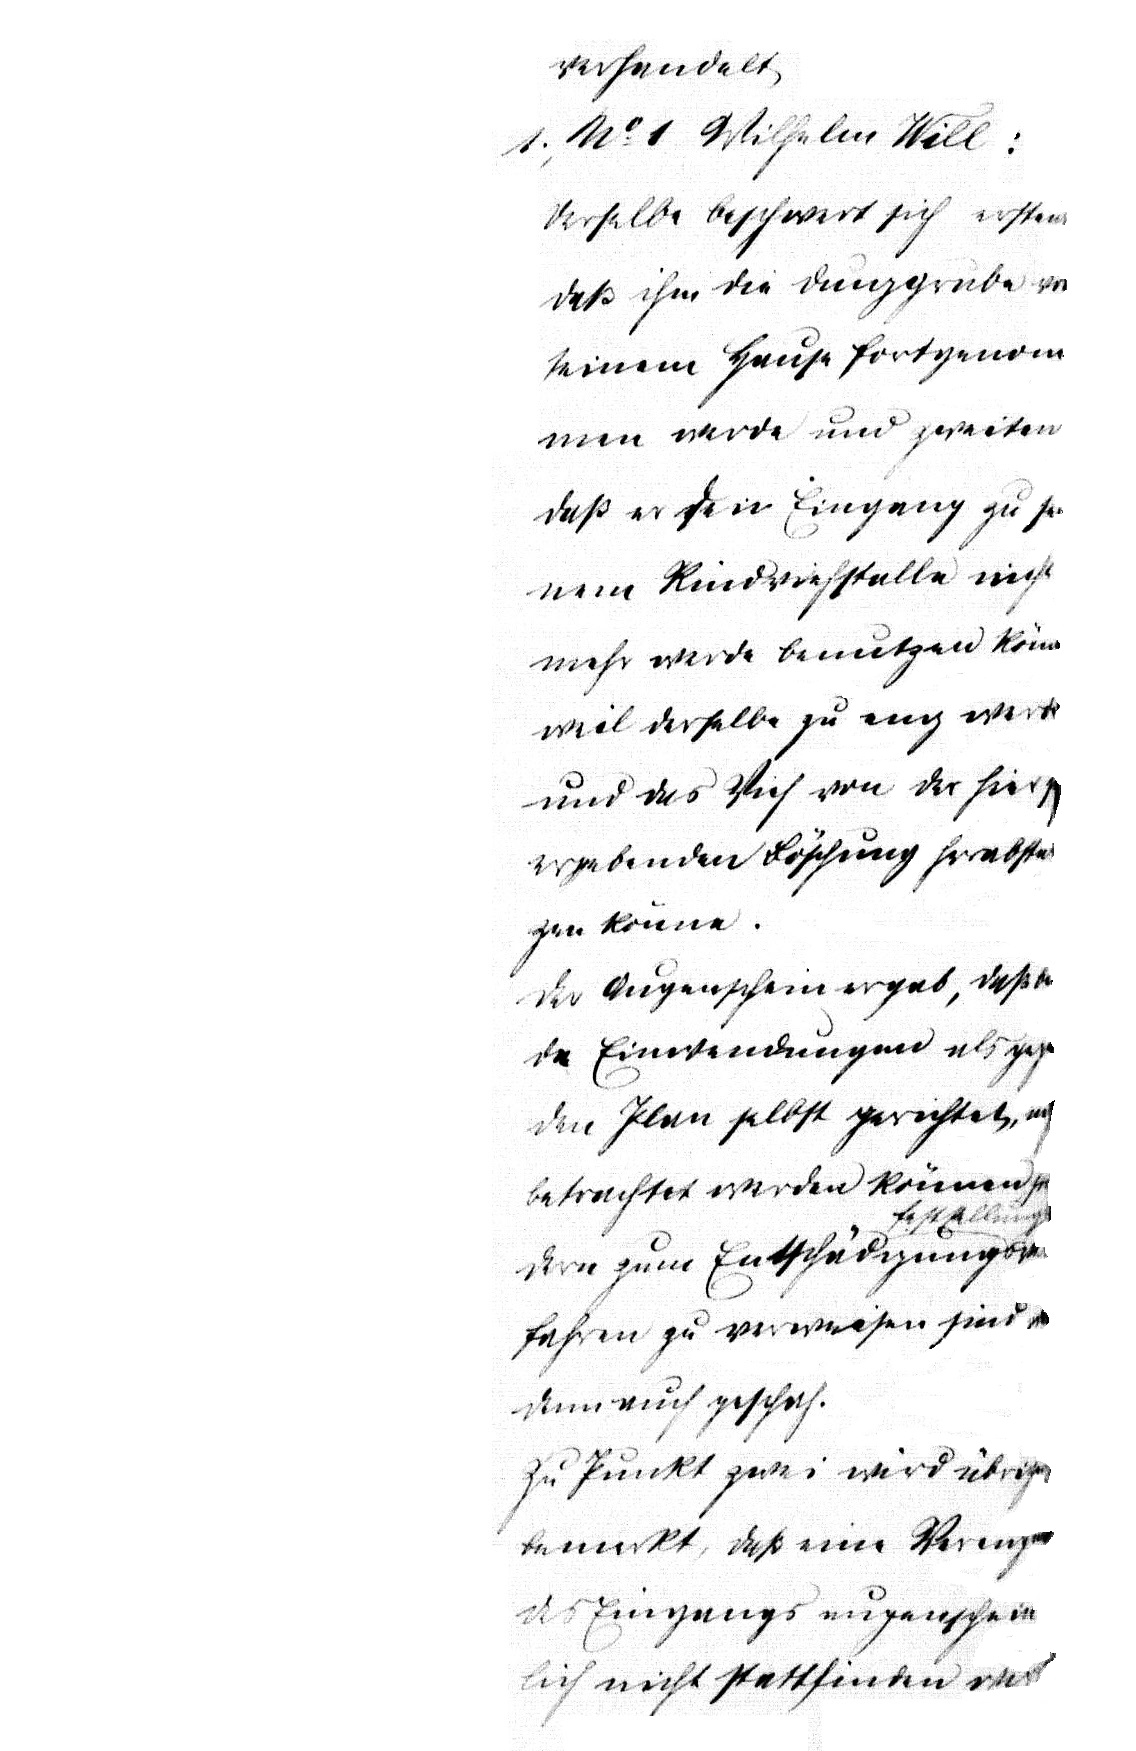 verhandelt,
1., No 1 Wilhelm Will:
Derselbe beschwert sich erstens
daß ihm die Dunggrube vor
seinem Hause fortgenom
men werde und zweitens
daß er den Eingang zu sei
nem Rindviehstalle nicht
mehr werde benutzen könn
weil derselbe zu eng werde
und das Vieh von der hier
ergebenden Böschung herabstei
gen könne.
Der Augenschein ergab, daß bei
de Einwendungen als gegen
den Plan selbst gerichtet, nicht
betrachtet werden können, son
feststellungs
dern zum Entschädigungsver
fahren zu verweisen sind
denn auch geschah.
Zu Punkt zwei wird übrigens
bemerkt, daß eine Verengung
des Eingangs augenschein
lich nicht stattfinden wird